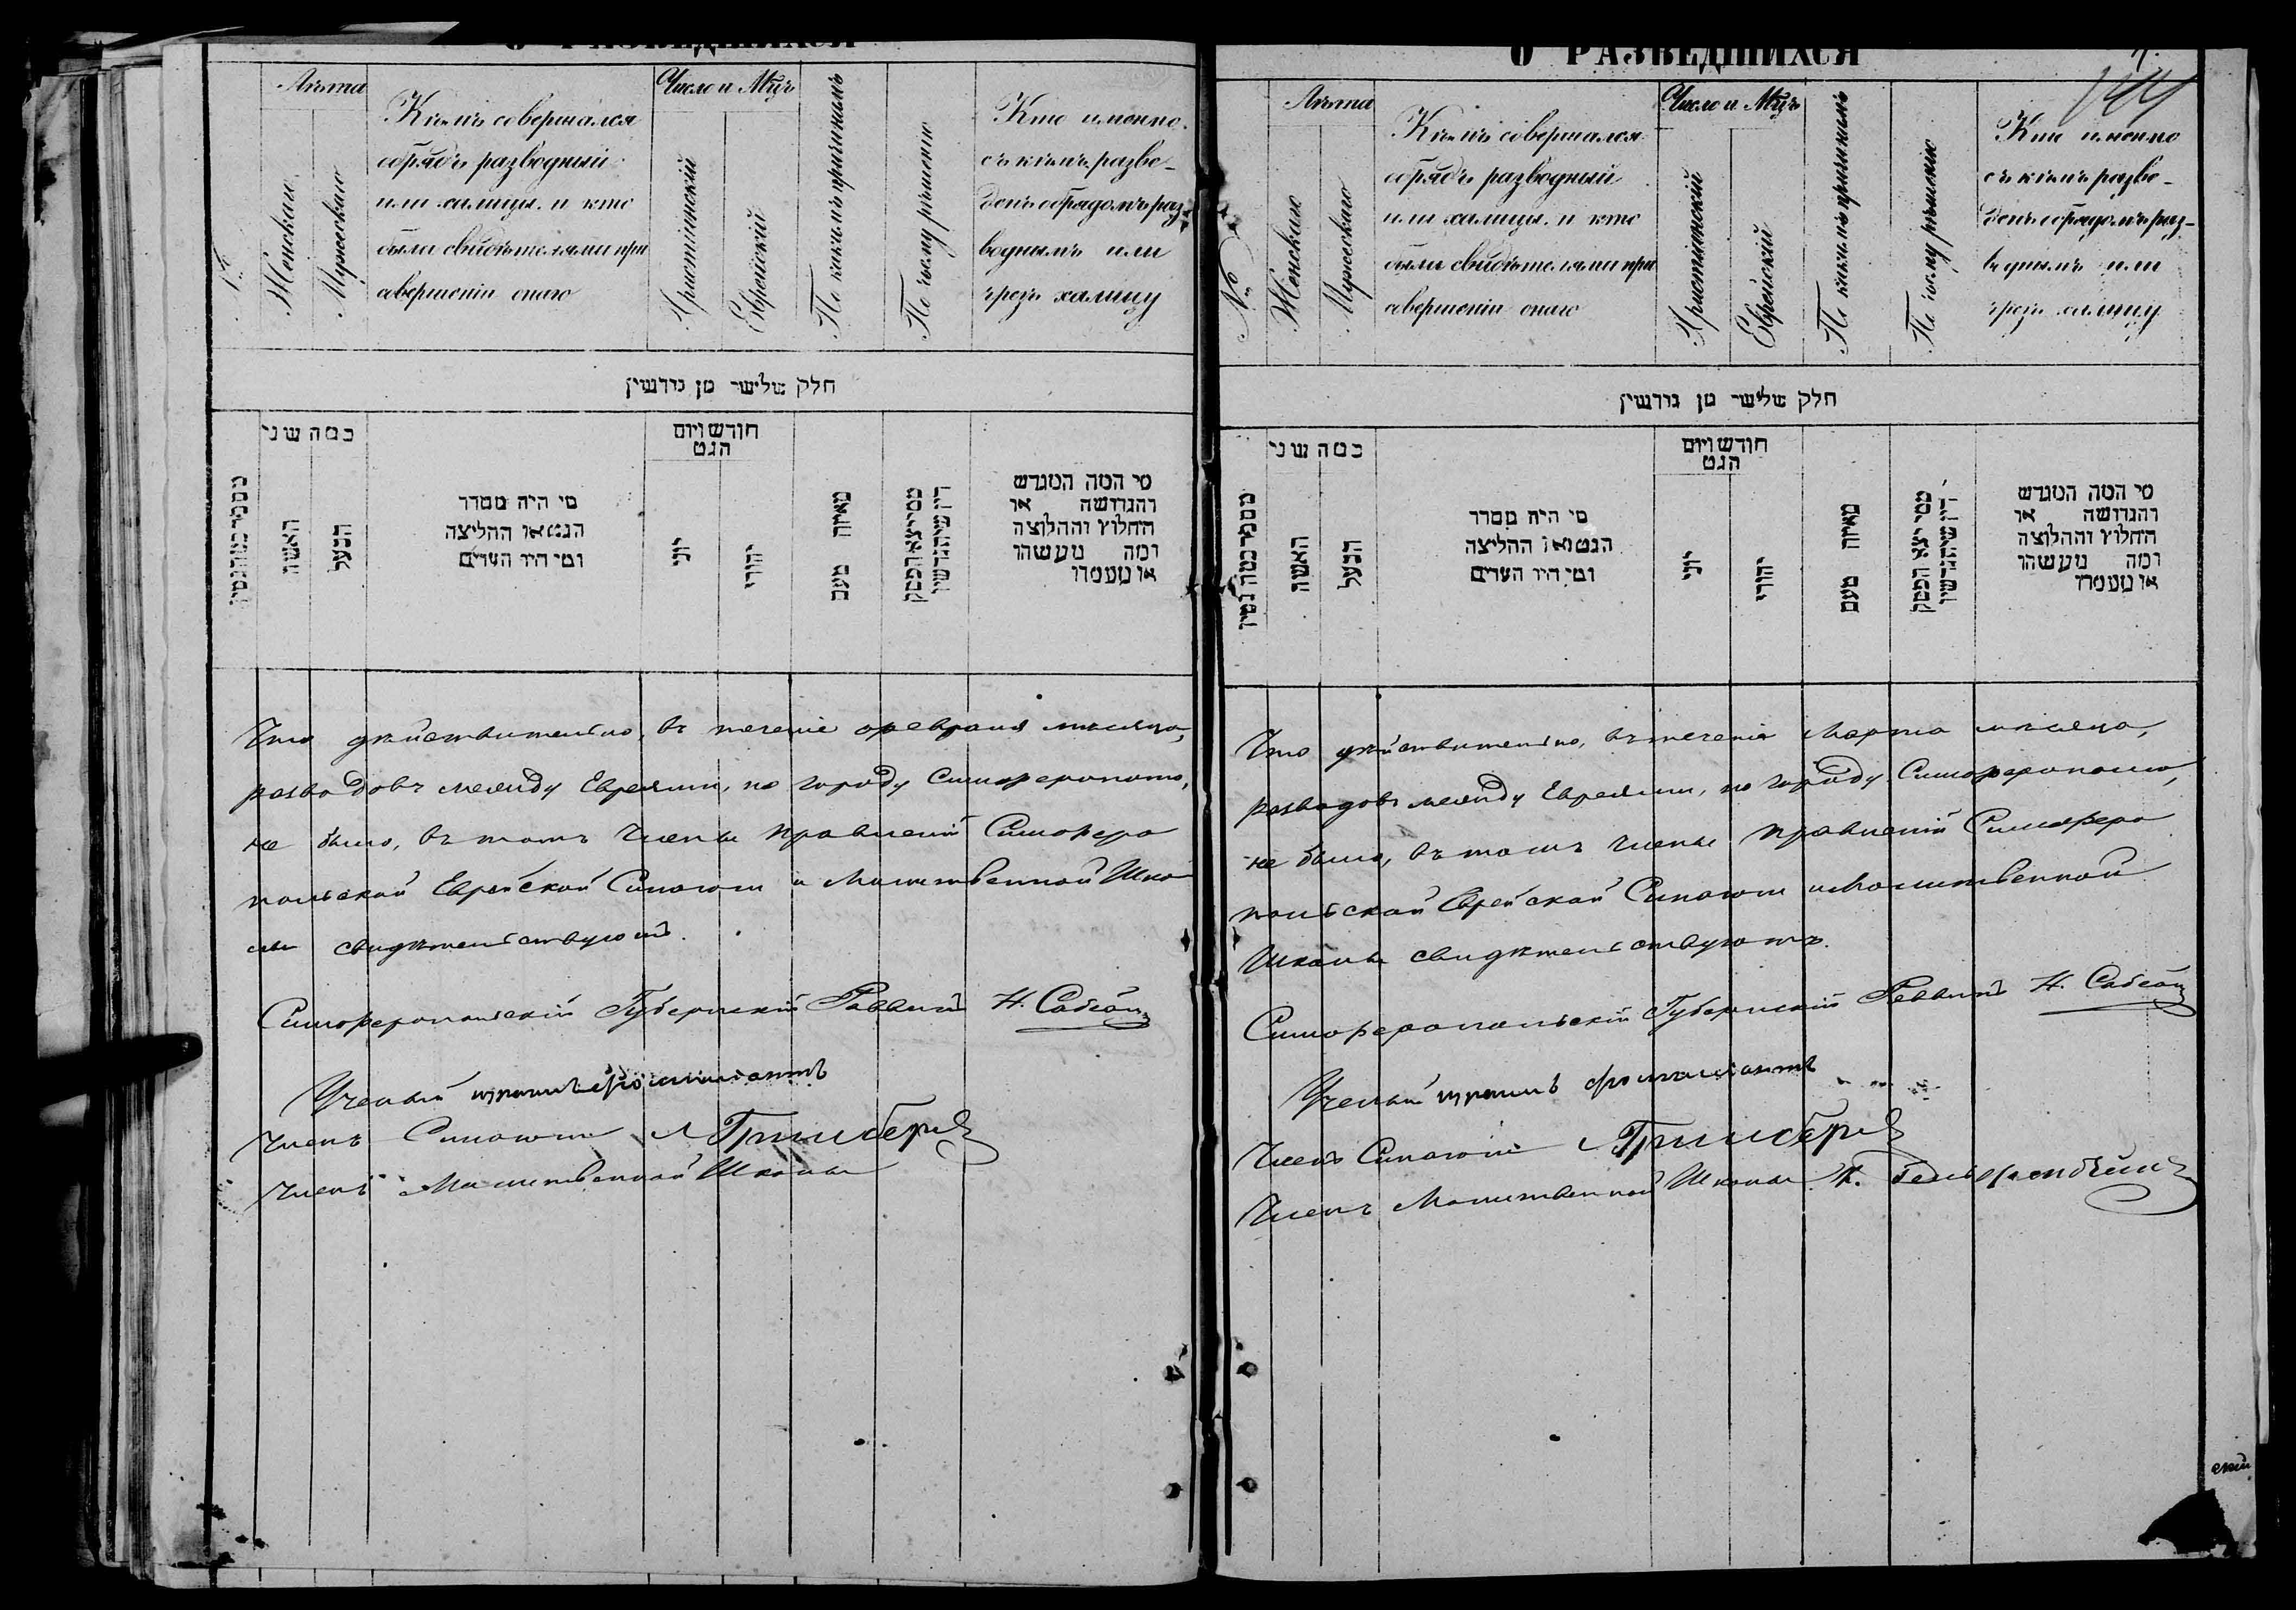 О РАЗВЕДШИХСЯ
№
Лѣта
Женскаго
Мужескаго
Кѣмъ совершался
обрядъ разводный
или халицы и кто
были свидѣтелями при
совершеніи онаго
Число и Мцъ
Христіанскій
Еврейскій
По какимъ причинамъ
По чьему рѣшенію
Кто именно
съ кѣмъ разве-
денъ обрядомъ раз
воднымъ или
чрезъ халицу
חלק שלישי מן גירושין
כמה שני
האשה
הבעל
מי היה מסדר
הגט או החליצה
ומי היו העדים
חודש ויום
הגט
יוני
יהודי
מאיזה טעם
ממי יצא הפסק
דין שיתגרשו
מי המה המגרש
והגרושה או
החלוץ וההלוצה
ומה מעשהו
או מעמדו
Что дѣйствительно, въ теченіе февраля мѣсяца,
разводовъ между Евреями, по городу Симферополю,
не было, въ томъ Члены правленій Симферо
польской Еврейской Синагоги и Молитвенной Шко
лы свидѣтельствуютъ.
Симферопольскій Губернскій Раввинъ Н.
Ученый
Членъ Синагоги Гринбергъ
Членъ Молитвенной Школы
О РАЗВЕДШИХСЯ
№
Лѣта
Женскаго
Мужескаго
Кѣмъ совершался
обрядъ разводный
или халицы и кто
были свидѣтелями при
совершеніи онаго
Число и Мцъ
Христіанскій
Еврейскій
По какимъ причинамъ
По чьему рѣшенію
Кто именно
съ кѣмъ разве-
денъ обрядомъ раз-
воднымъ или
чрезъ халицу
חלק שלישי מן גירושין
כמה שני
האשה
הבעל
מי היה מסדר
הגט או ההליצה
ומי היו העדים
חודש ויום
הגט
יוני
יהודי
מאיזה טעם
ממי יצא הפסק
דין שיתגרשו
מי המה המגרש
והגרושה או
החלוץ וההלוצה
ומה מעשהו
או מעמדו
Что дѣйствительно, въ теченія Марта мѣсяца,
разводовъ между Евреями, по городу Симферополю,
не было, въ томъ Члены правленій Симферо
польской Еврейской Синагоги и Молитвенной
Школы свидѣтельствуютъ.
Симферопольскій Губернскій Раввинъ Н.
Ученый
Членъ Синагоги Гринбергъ
Членъ Молитвенной Школы